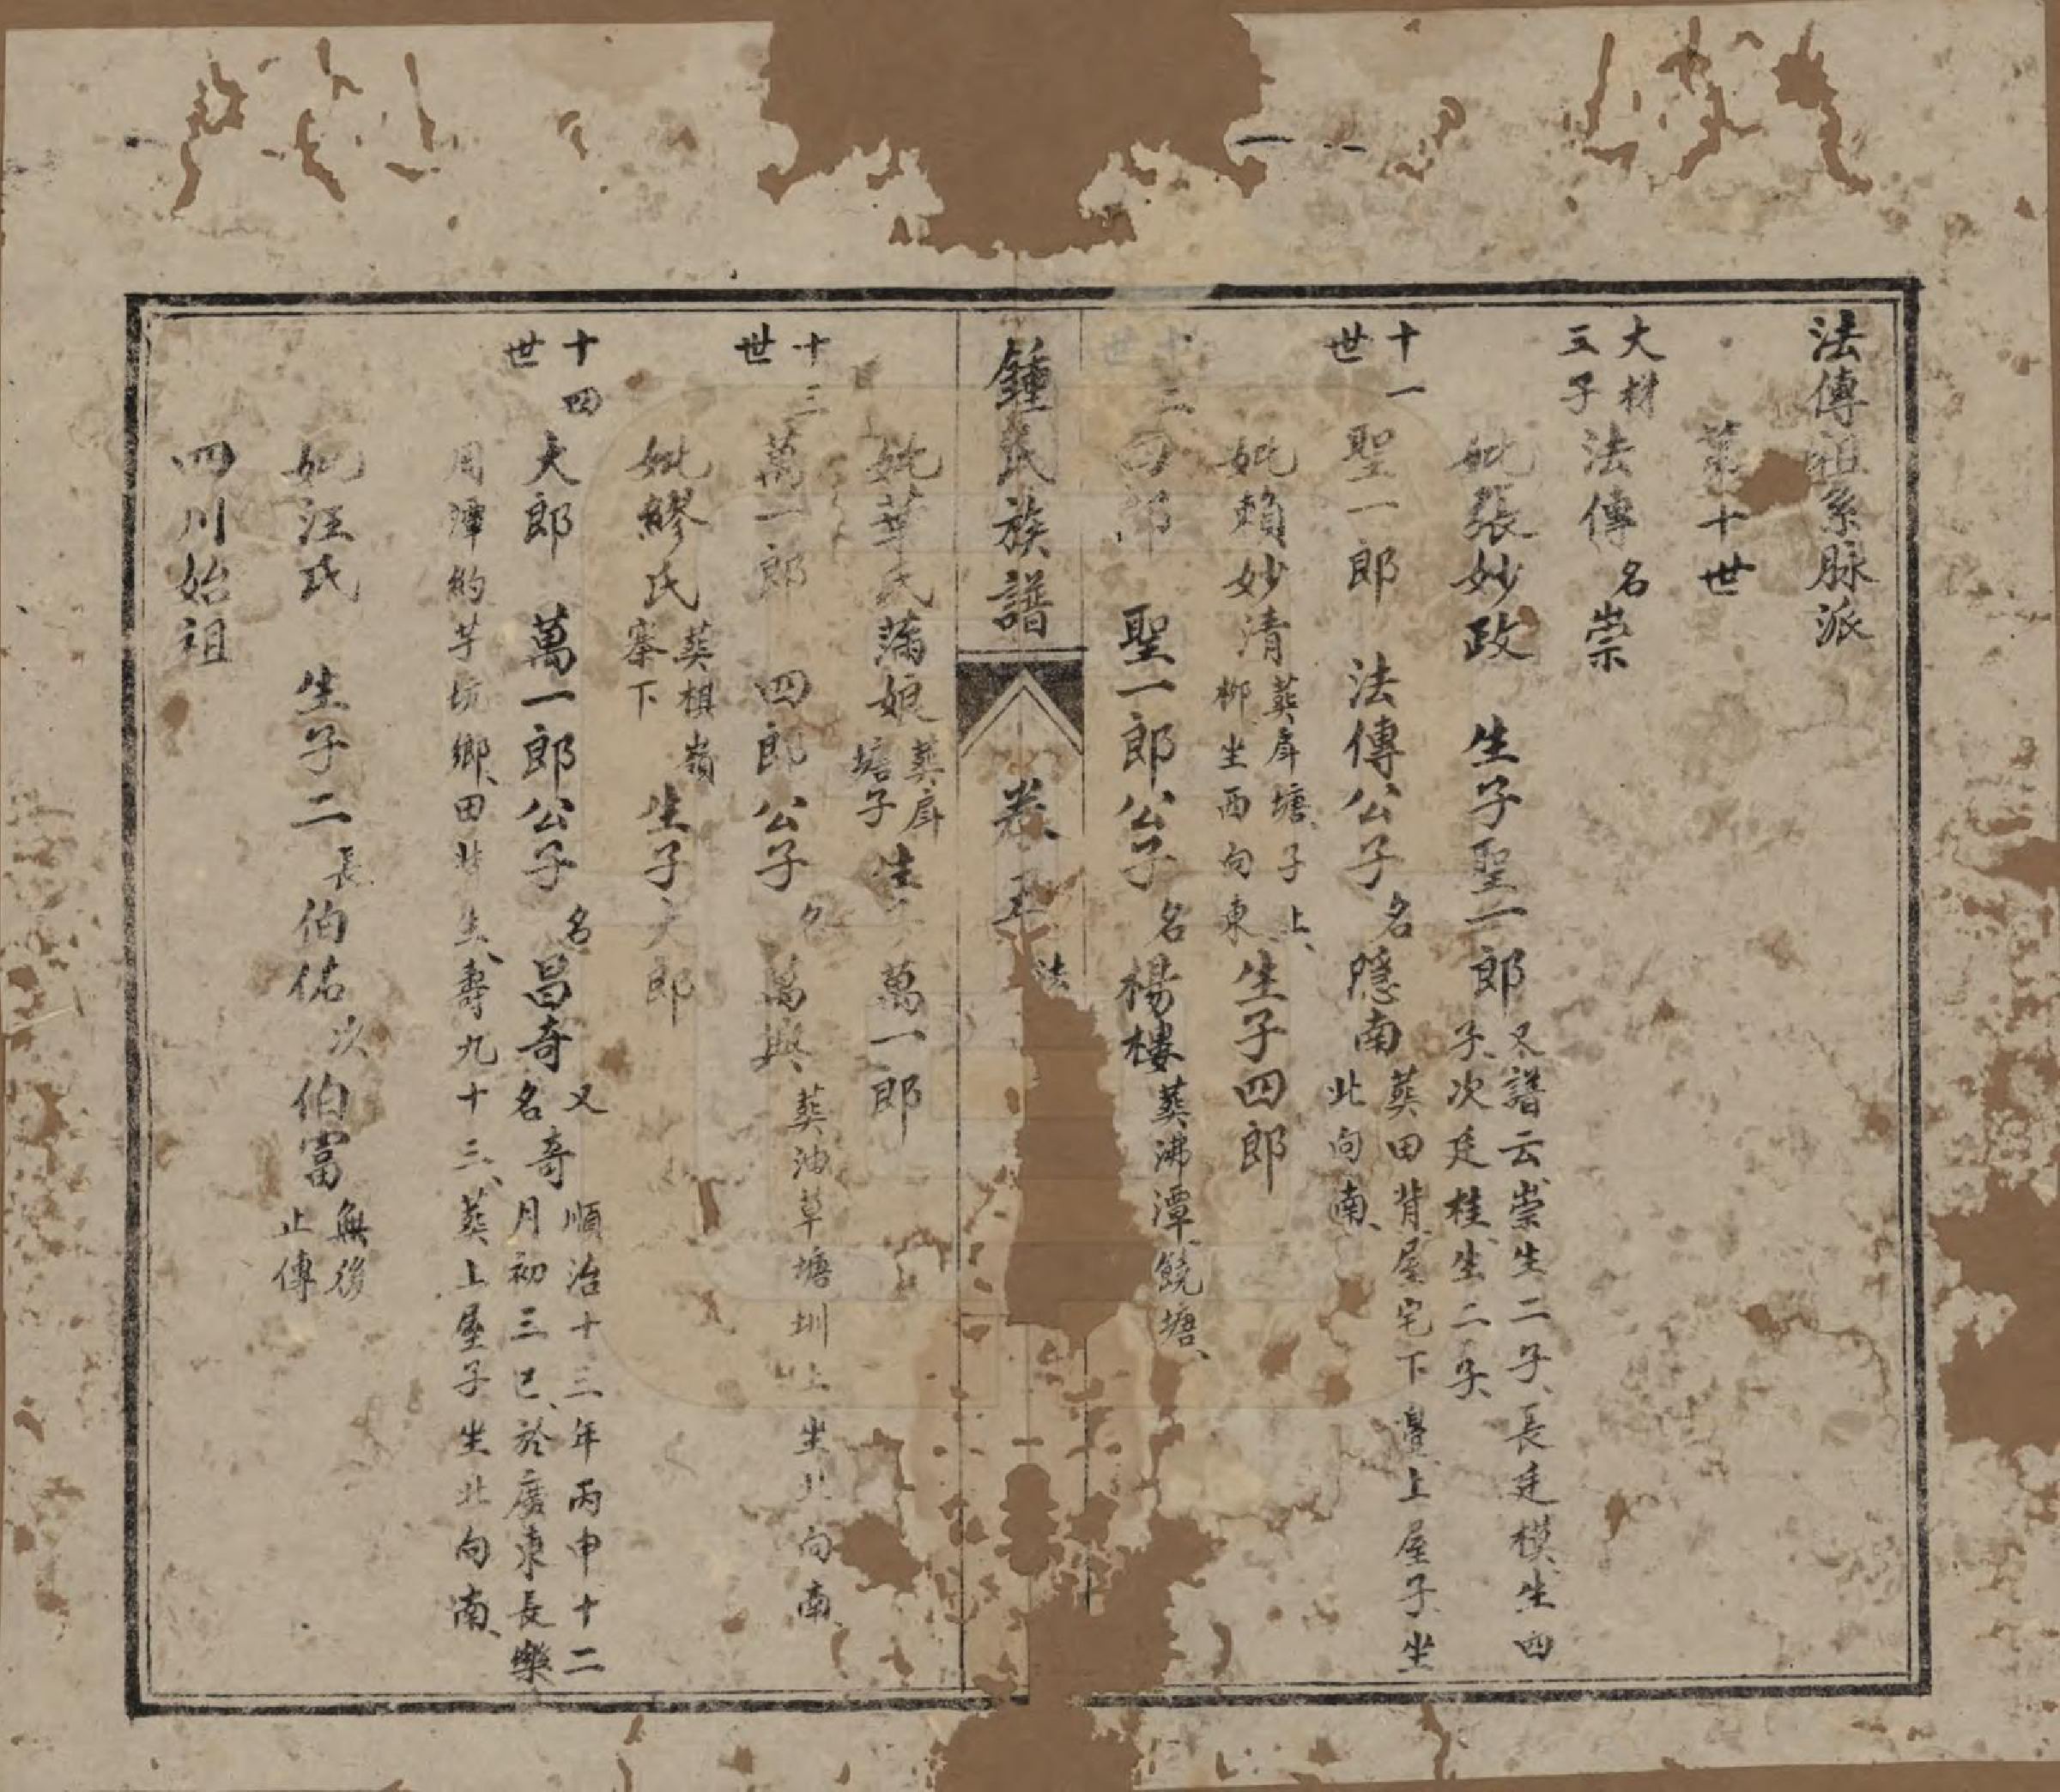 法傳祖系脉派
第十世
大材三子 法傳 名崇
妣張妙政 生子聖一郎 又譜云崇生二子、長廷模、生四子、次廷桂、生二子、
十一世 聖一郎 法傳公子 名隱南 葬田背、屋宅下邊上屋子、坐北向南、
妣賴妙清 葬厚塘、子上、柳坐西向東、 生子四郎
十二世 四郎 聖一郎公子 名楊樓 葬沸潭、饒塘、
鍾氏族譜 卷五 法
妣華氏滿娘 葬厚塘子 生子萬一郎
十三世 萬一郎 四郎公子 名萬興 葬油草塘圳上坐北向南、
妣繆氏 葬棋嶺寨下 生子大郎
十四世 大郎 萬一郎公子 名昌奇 又名奇 順治十三年丙申十二月初三巳、於廣東長樂
周潭約芋坑鄉、田背生、壽九十三、葬上屋子坐北向南、
妣汪氏 生子二 長伯佑 次伯富 無後止傳
四川始祖